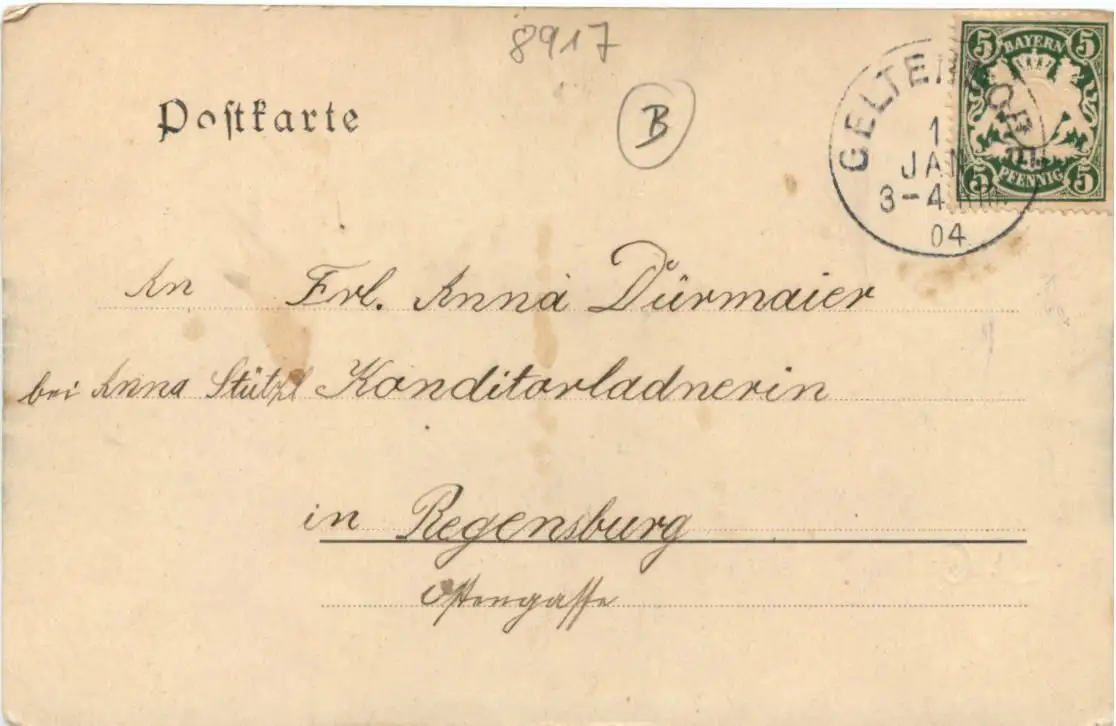 8917
B
Postkarte
5 BAYERN 5
5 PFENNIG 5
GELTENDORF
1
JAN
3-4 Nm.
04
An Frl. Anna Dürmaier
bei Anna Stützl Konditorladnerin
in Regensburg
Ostengasse